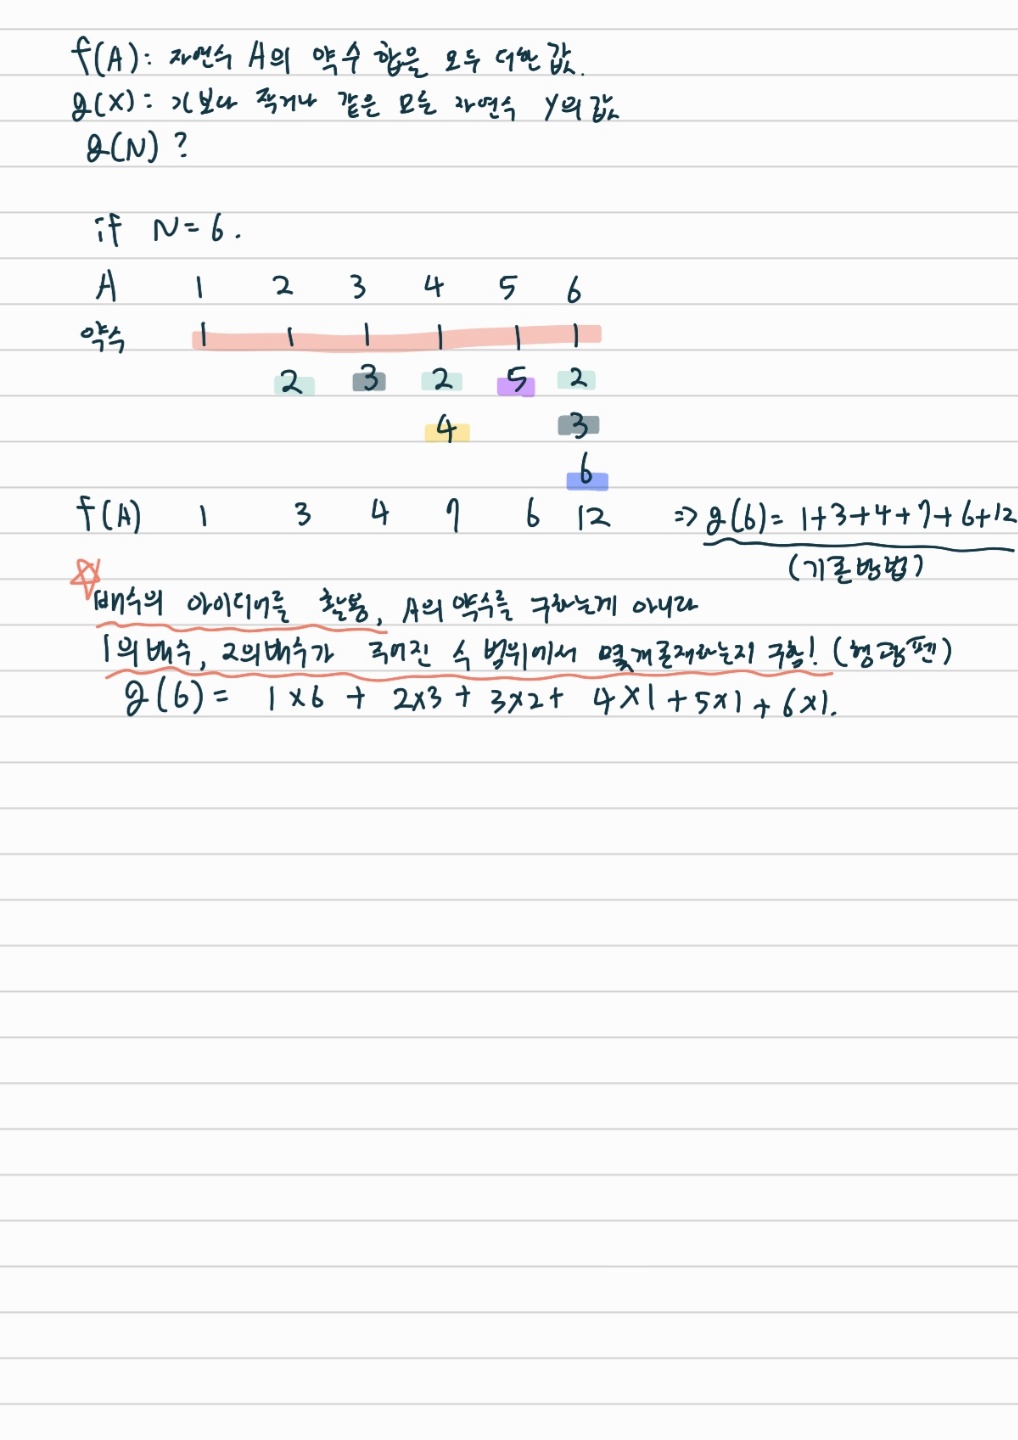 f(A): 자연수 A의 약수 합을 모두 더한 값.
g(x): x보다 작거나 같은 모든 자연수 y의 값
g(N)?
if N=6.
A 1 2 3 4 5 6
약수 1 1 1 1 1 1
2 3 2 5 2
4 3
6
f(A) 1 3 4 7 6 12 => g(6)= 1+3+4+7+6+12
(기존방법)
☆ 배수의 아이디어를 활용, A의 약수를 구하는게 아니라
1의배수, 2의배수가 주어진 수 범위에서 몇개존재하는지 구함! (형광펜)
g(6)= 1×6 + 2×3 + 3×2 + 4×1 + 5×1 + 6×1.